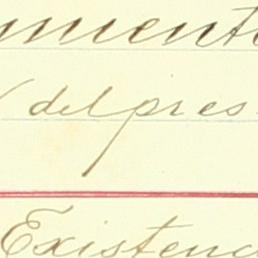 umento
(del pres
Existenc